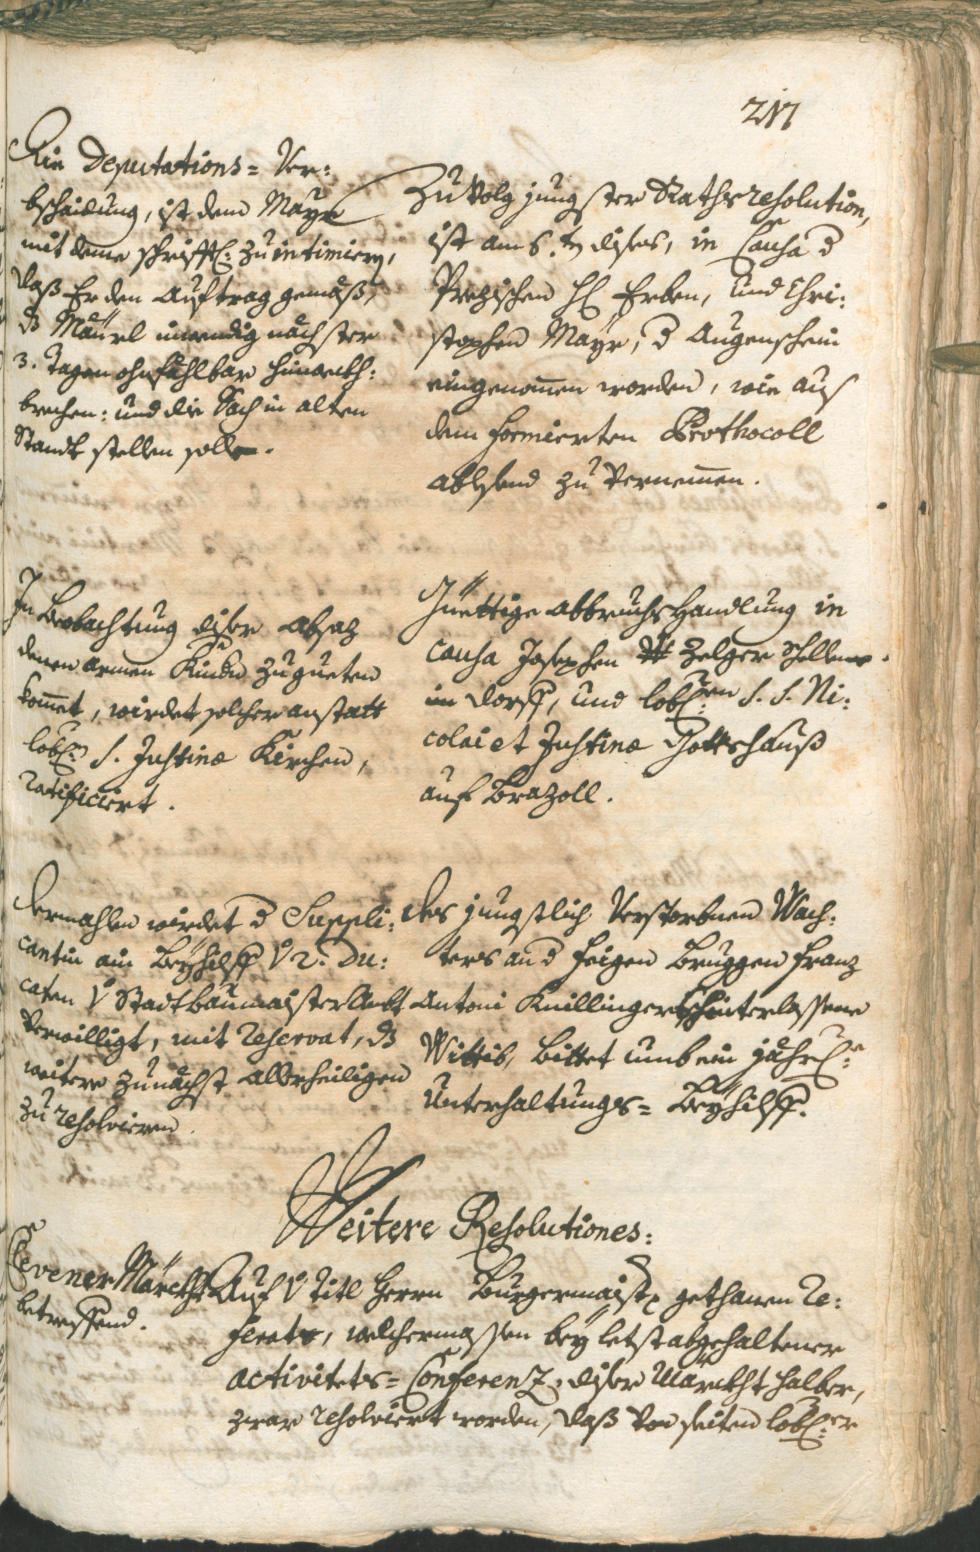 217
Die Deputations= Ver:
bschaidung, ist dem Mayr
mit deme schrifftl: zu intimiern,
daß Er den Auftrag gemäß,
dz Mäurl innendig nächster
3. Tagen ohnfählbar hinweckh:
brechen: und die Sach in alten
Standt stellen solle.
Zu Volg jungster Raths resolution,
ist am 6.ten dises, in Causa d
Prezischen H: Erben, und Chri:
stophen Mayr, d Augenschein
eingenommen worden, wie aus
dem formierten Prothocoll
ablesend zu vernemmen.
In Beobachtung diser Absaz
denen armen Kindern zu gueten
kommet, wirdet solcher anstatt
löbl:n S. Justinæ Kirchen,
ratificiert.
Güettige Abbruchs Handlung in
causa Josephen Zelger
im Dorff, und löbl:en S. S. Ni:
colai et Justinæ Gottshauß
auf Prazoll.
Dermahlen wirdet d Suppli:
cantin ain Beyhilff v 2. Du:
caten v Stadtbaumaister Ambt
verwilligt, mit reservat, dz
weitere zu nächst Allerheiligen
zu resolvieren.
Des jüngstlich verstorbnen Wach:
ters an d Eisgen Bruggen Franz
Antoni Knillingers hinterlassene
Wittib, bittet umb ein jährl:e
Unterhaltungs= Beyhilff.
Weitere Resolutiones:
Clevener Märckht
betreffend.
Auf v Titl Herrn Burgermaister gethanen Re:
ferats, welchermassen bey letst abgehaltener
activitets= Conferenz, diser Märckht halber,
zwar resolviert worden, daß von seiten löbl:er